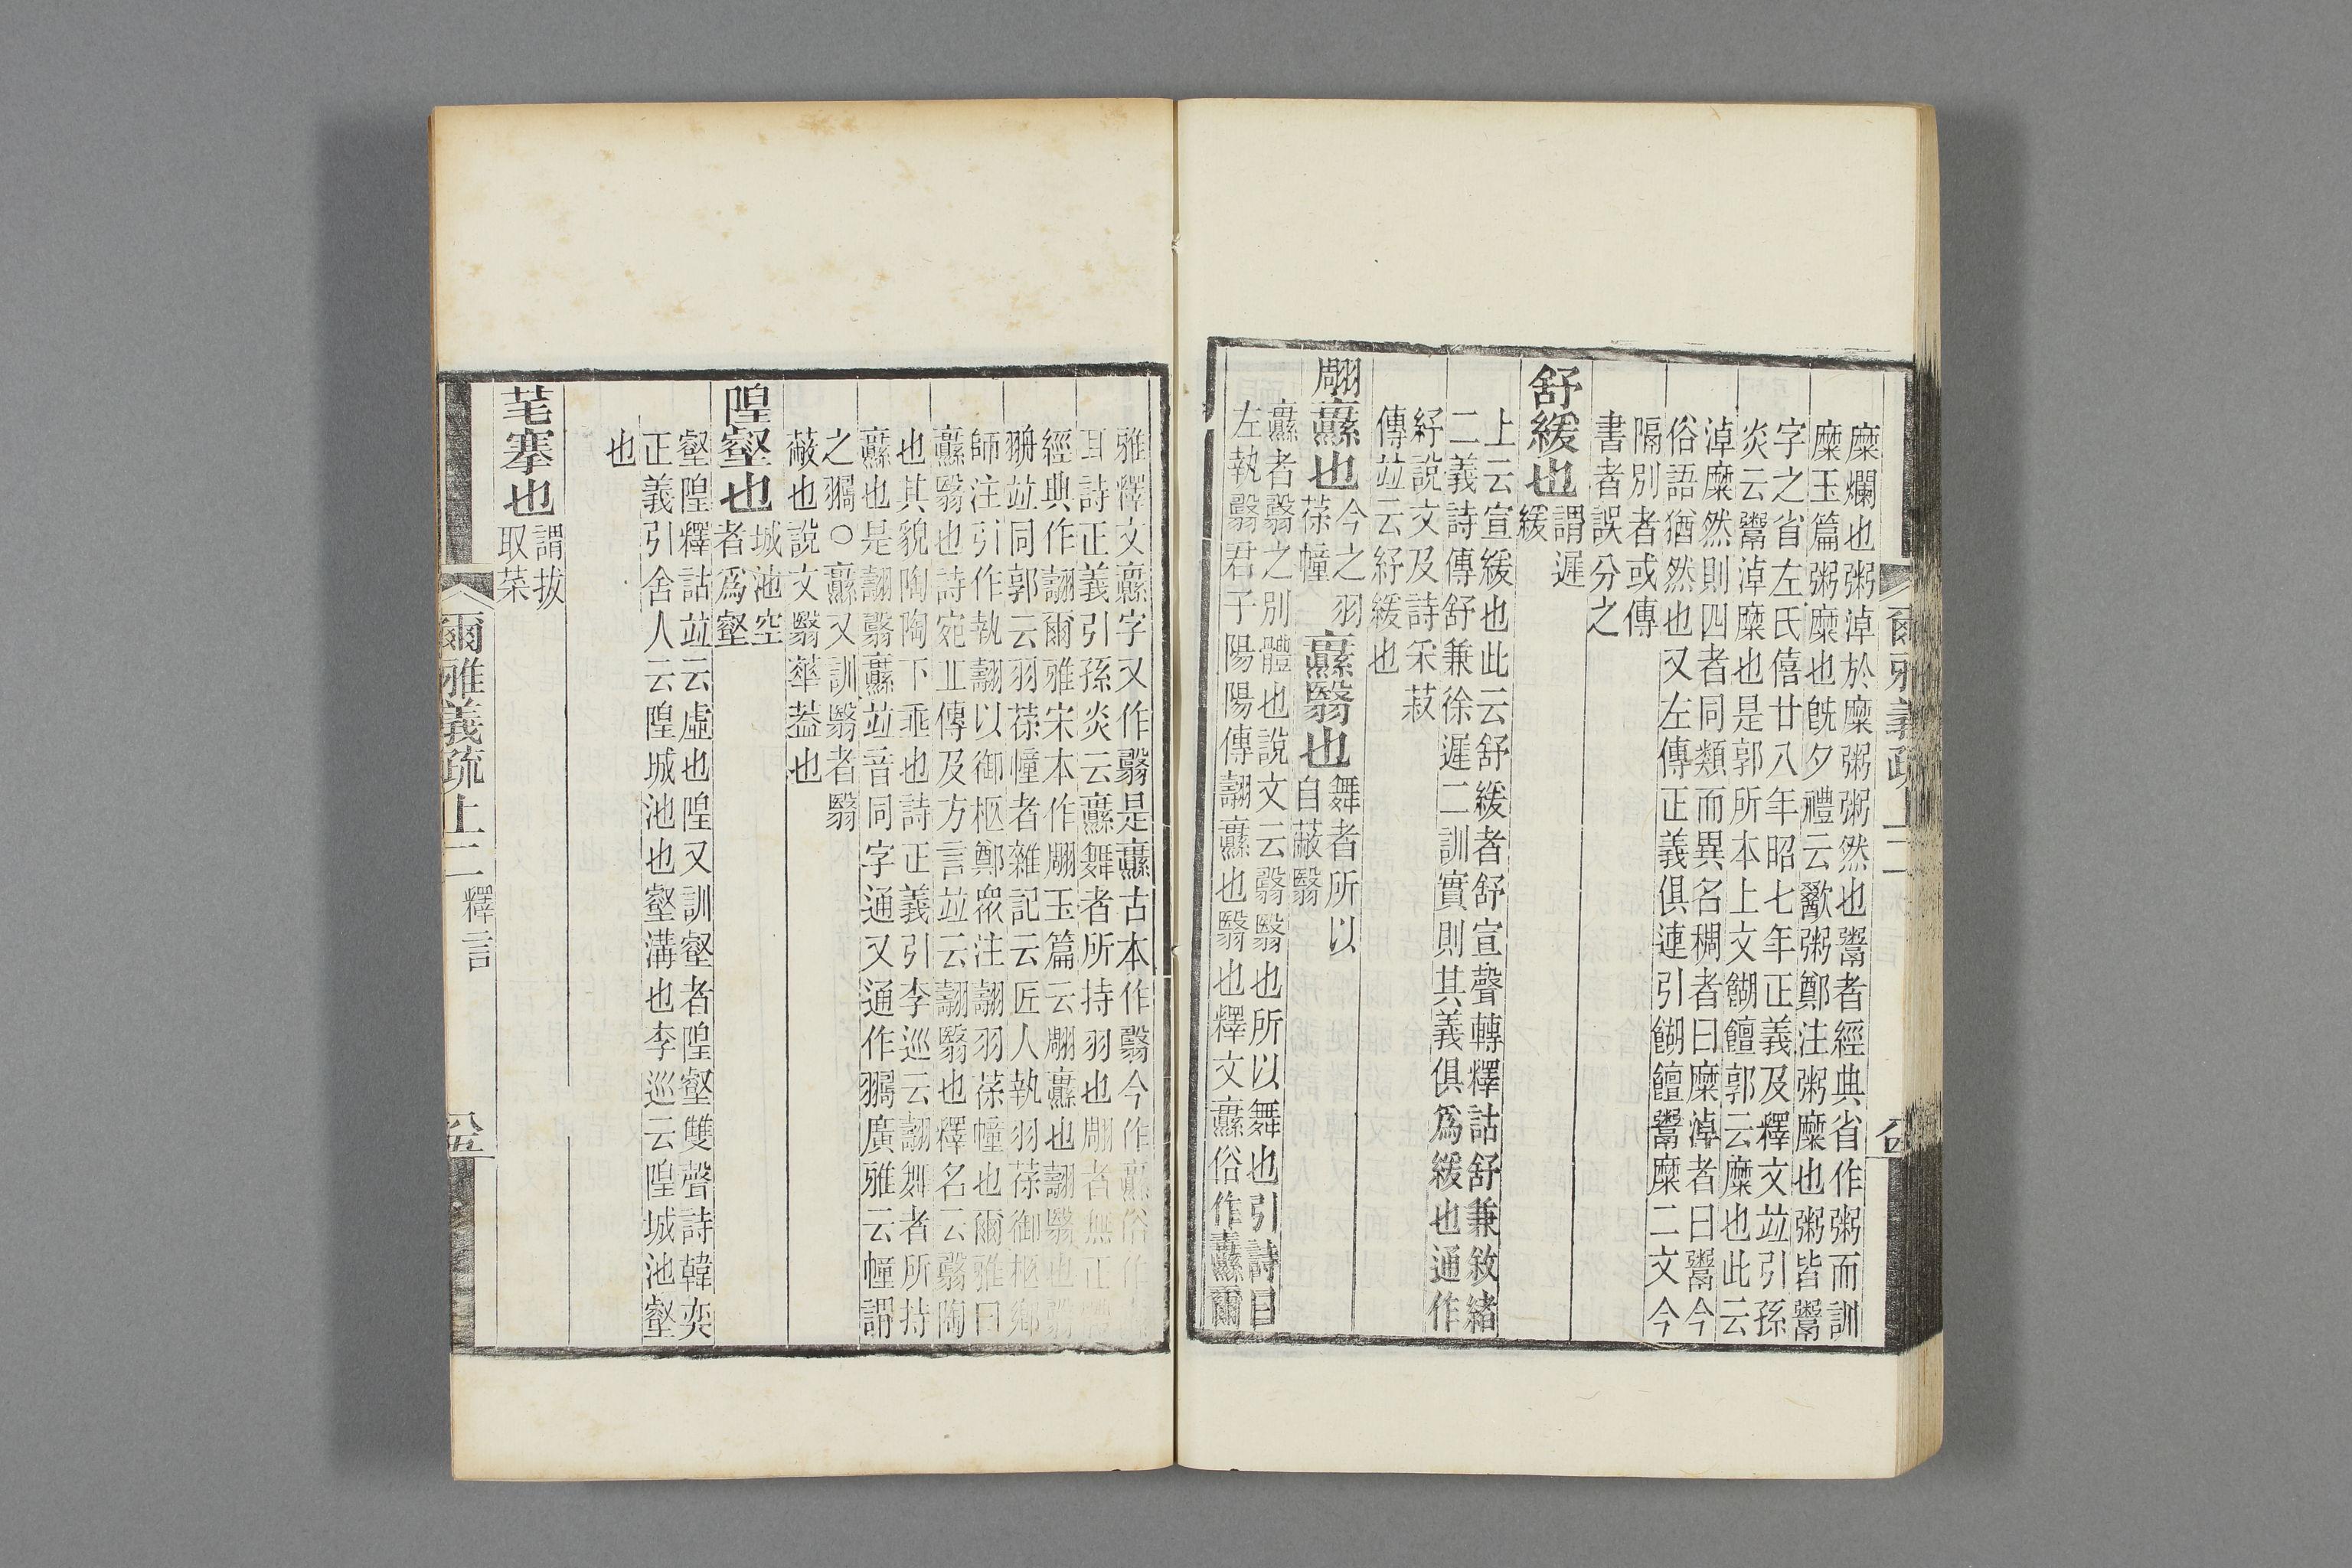 糜爛也粥淖於糜粥粥然也鬻者經典省作粥而訓
糜玉篇粥糜也旣夕禮云歠粥鄭注粥糜也粥皆鬻
字之省左氏僖廿八年昭七年正義及釋文竝引孫
炎云鬻淖糜也是郭所本上文餬饘郭云糜也此云
淖糜然則四者同類而異名稠者曰糜淖者曰鬻今
俗語猶然也又左傳正義俱連引餬饘鬻糜二文今
隔別者或傳
書者誤分之
舒緩也謂遲
緩
上云宣緩也此云舒緩者舒宣聲轉釋詁舒兼敘緒
二義詩傳舒兼徐遲二訓實則其義俱爲緩也通作
紓說文及詩采菽
傳竝云紓緩也
翢纛也今之羽
葆幢
纛翳也舞者所以
自蔽翳
纛者翳之別體也說文云翳翳也所以舞也引詩曰
左執翳君子陽陽傳翿纛也翳也釋文纛俗作纛爾
爾雅義疏上二
雅釋文纛字又作翳是纛古本作翳今作纛俗作
耳詩正義引孫炎云纛舞者所持羽也翢者無正
經典作翿爾雅宋本作翢玉篇云翢纛也翿翳也翳
翢竝同郭云羽葆幢者雜記云匠人執羽葆御柩鄉
師注引作執翿以御柩鄭眾注翿羽葆幢也爾雅曰
纛翳也詩宛丘傳及方言竝云翿翳也釋名云翳陶
也其貌陶陶下垂也詩正義引李巡云翿舞者所持
纛也是翿翳纛竝音同字通又通作翢廣雅云幢謂
之翢○纛又訓翳者翳
蔽也說文翳華葢也
隍壑也城池空
者爲壑
壑隍釋詁竝云虛也隍又訓壑者隍壑雙聲詩韓奕
正義引舍人云隍城池也壑溝也李巡云隍城池壑
也
芼搴也謂拔
取菜
爾雅義疏上二
釋言
八五